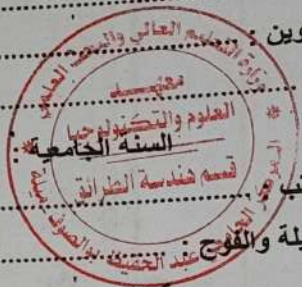 وين :
وزارة التعليم العالي والبحث العلمي
معهد
العلوم والتكنولوجيا
السنة الجامعية :
قسم هندسة الطرائق
المركز الجامعي عبد الحفيظ بوالصوف ميلة
يلة والفوج :